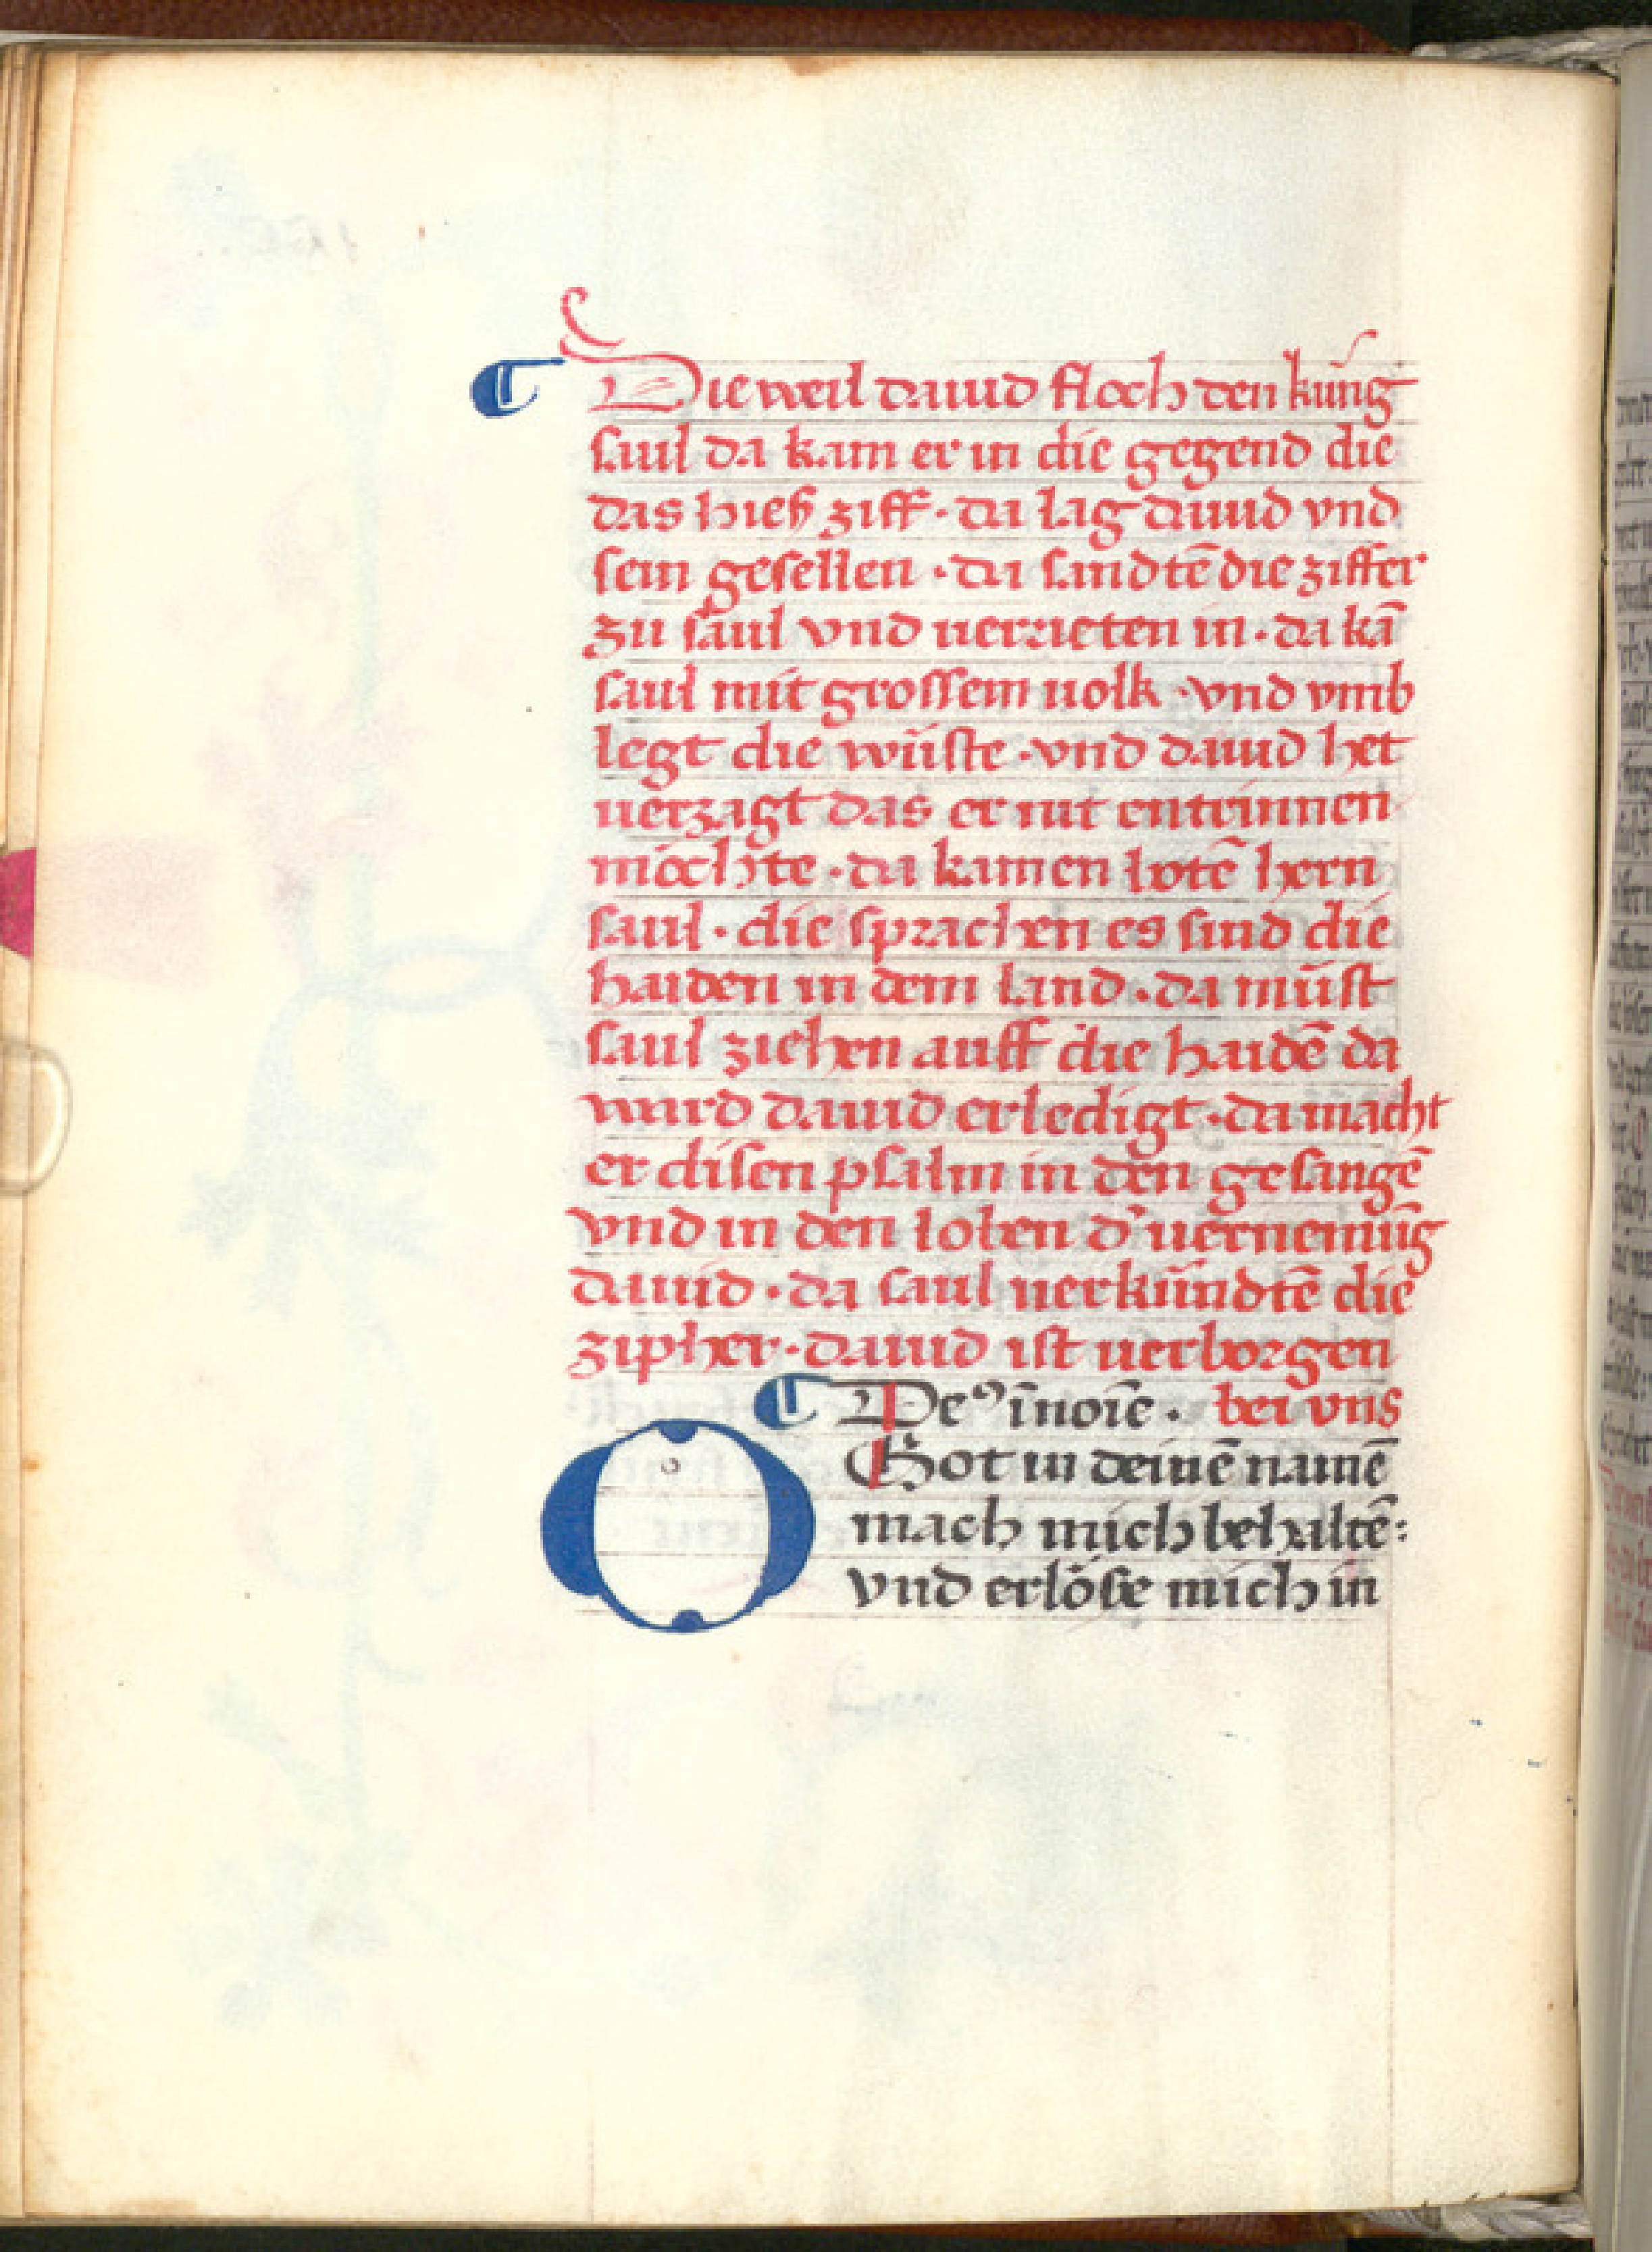 ¶ Die weil dauid floch den kúng
saul da kam er in die gegend die
das hieß ziff · da lag dauid vnd
sein gesellen · da sandtē die ziffer
zu saul vnd uerrieten in · da kā
saul mit grossem uolk · vnd vmb
legt die wüste · vnd dauid het
uerzagt das er nit entrinnen
möchte · da kamen botē hern
saul · die sprachen es sind die
haiden in dem land · da müst
saul ziehen auff die haidē da
ward dauid erledigt · da macht
er disen psalm in den gesangē
vnd in den loben d' uernemūg
dauid · da saul uerkündtē die
zipher · dauid ist uerborgen
¶ Deꝰ ī noīe · bei vns
O Got in deinē namē
mach mich behaltē:
vnd erlöse mich in